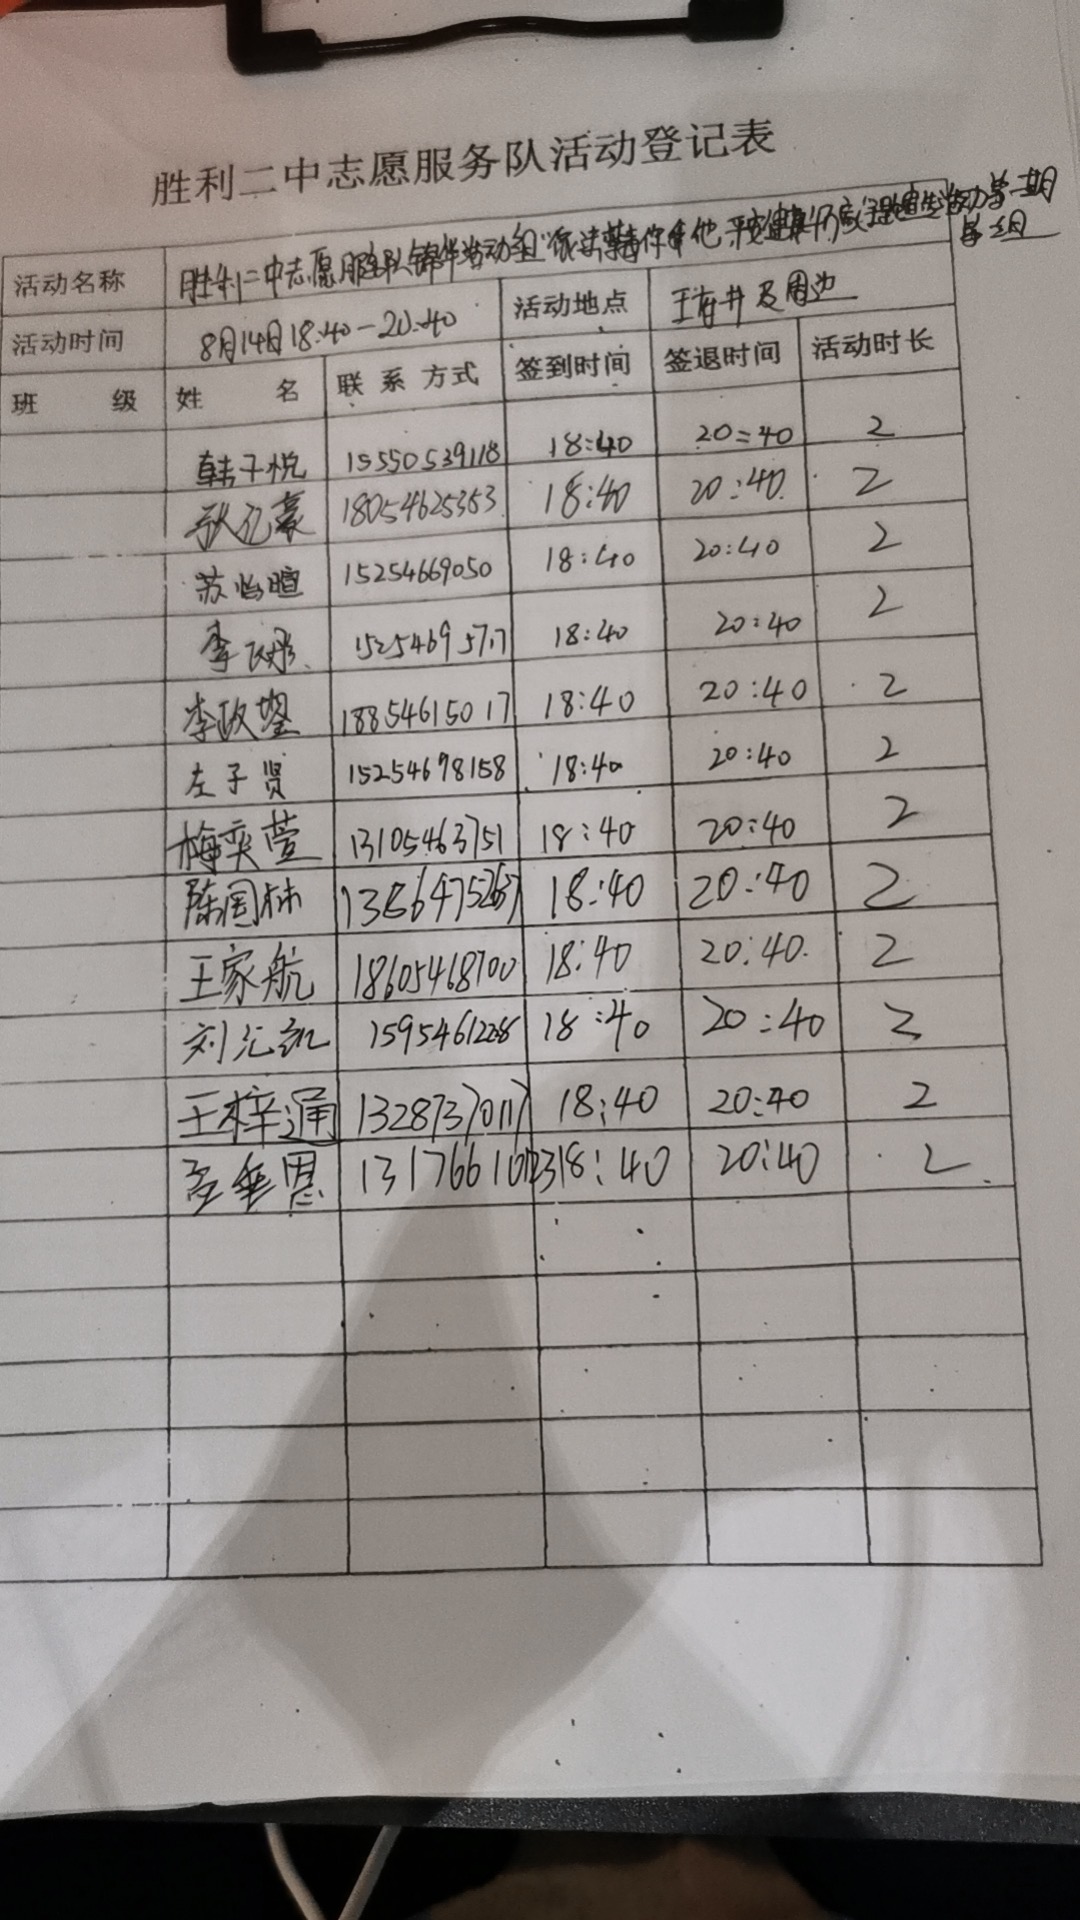 胜利二中志愿服务队活动登记表
活动名称 胜利二中志愿服务队锦华活动组"依法
活动时间 8月14日18:40-20:40 活动地点 王府井及周边
班级 姓名 联系方式 签到时间 签退时间 活动时长
韩子悦 15550539118 18:40 20:40 2
耿亿豪 18054625353 18:40 20:40 2
苏怡暄 15254669050 18:40 20:40 2
李 18:40 20:40 2
李政 18854615017 18:40 20:40 2
左子贤 15254698158 18:40 20:40 2
梅奕萱 13105463751 18:40 20:40 2
陈国林 18:40 20:40 2
王家航 18605468700 18:40 20:40 2
刘 18:40 20:40 2
王梓通 13287370117 18:40 20:40 2
18:40 20:40 2